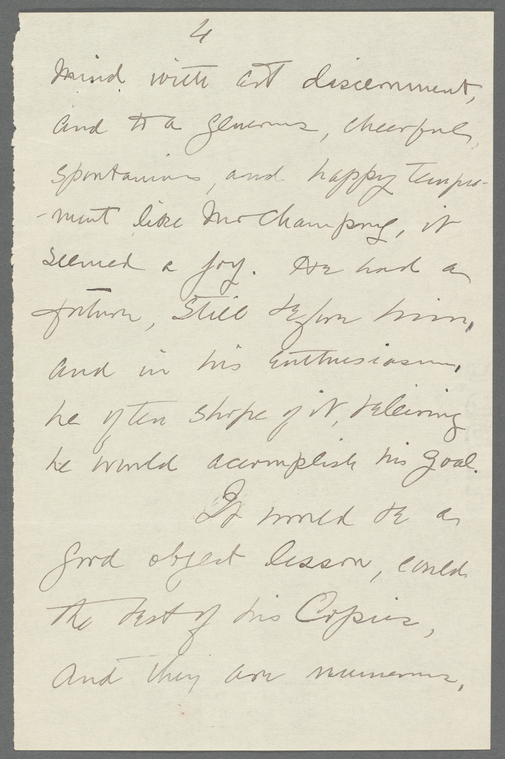 4
mind with art discernment,
and to a generous, cheerful,
spontanious, and happy tempra-
-ment like Mr Champney, it
seemed a joy. He had a
future, still before him,
and in his enthusiasm,
he often spoke of it, beleiving
he would accomplish his goal.
It would be a
good object lesson, could
the best of his Copies,
and they are numerous,